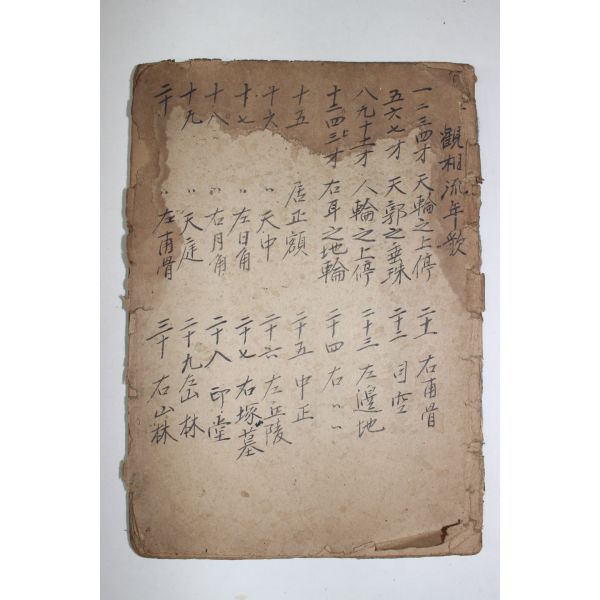 觀相流年歌
一二三四才 天輪之上停
五六七才 天郭之垂珠
八九十一才 人輪之上停
十二四三才 右耳之地輪
十五 居正額
十六 〃 天中
十七 〃 左日角
十八 〃 右月角
十九 〃 天庭
二十 〃 左甫骨
二十一 右甫骨
二十二 司空
二十三 左邊地
二十四 右 〃 〃
二十五 中正
二十六 左丘陵
二十七 右塚墓
二十八 印堂
二十九 左山林
三十 右山林